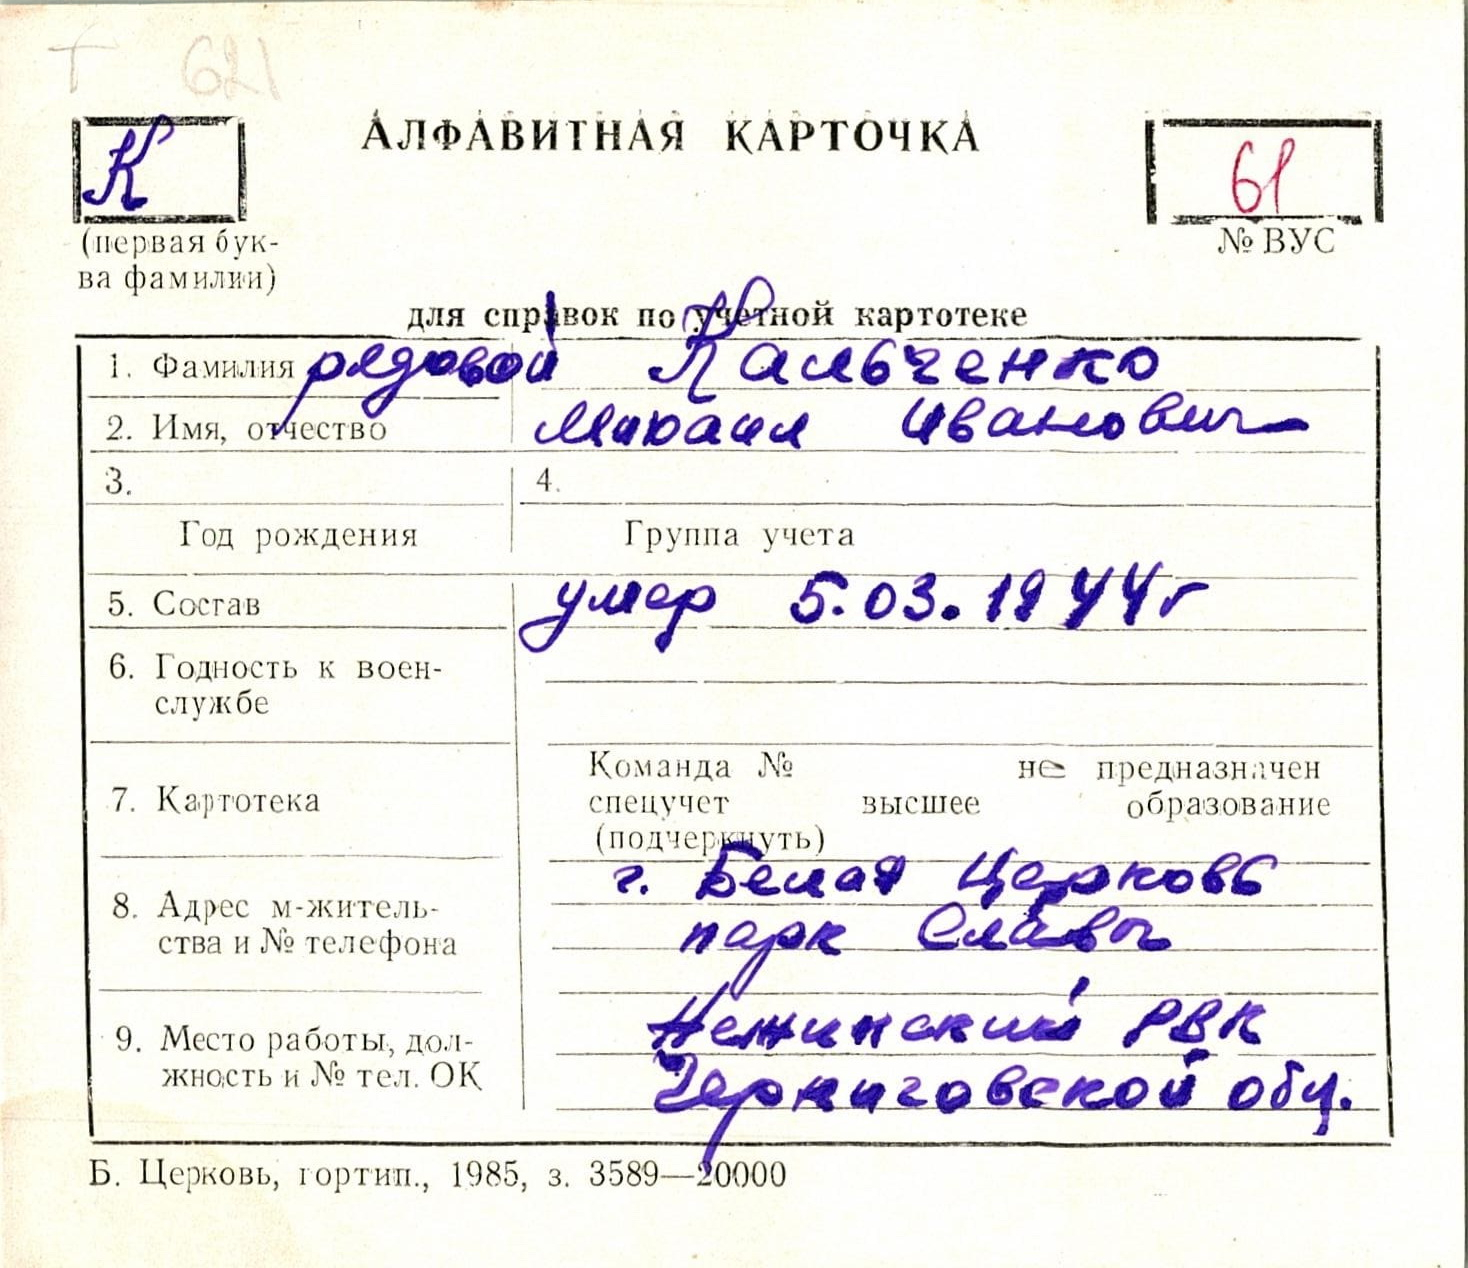 Т 621
АЛФАВИТНАЯ КАРТОЧКА
К
61
(первая бук-
ва фамилии)
№ ВУС
для справок по учетной картотеке
1. Фамилия рядовой Кальченко
2. Имя, отчество Михаил Иванович
3. 4.
Год рождения Группа учета
5. Состав умер 5.03.1944г
6. Годность к воен-
службе
Команда № не предназначен
7. Картотека спецучет высшее образование
(подчеркнуть)
г. Белая Церковь
8. Адрес м-житель-
ства и № телефона парк Славы
Нежинский РВК
9. Место работы, дол-
жность и № тел. ОК Черниговской обл.
Б. Церковь, гортип., 1985, з. 3589—20000